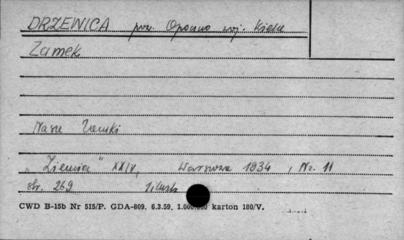 DRZEWICA pow. Opoczno woj. Kielce
Zamek
Nasze Zamki
"Ziemia" XXIV, Warszawa 1934, Nr. 11
str. 269 ilustr.
CWD B-15b Nr 515/P. GDA-809. 6.3.59. karton 180/V.